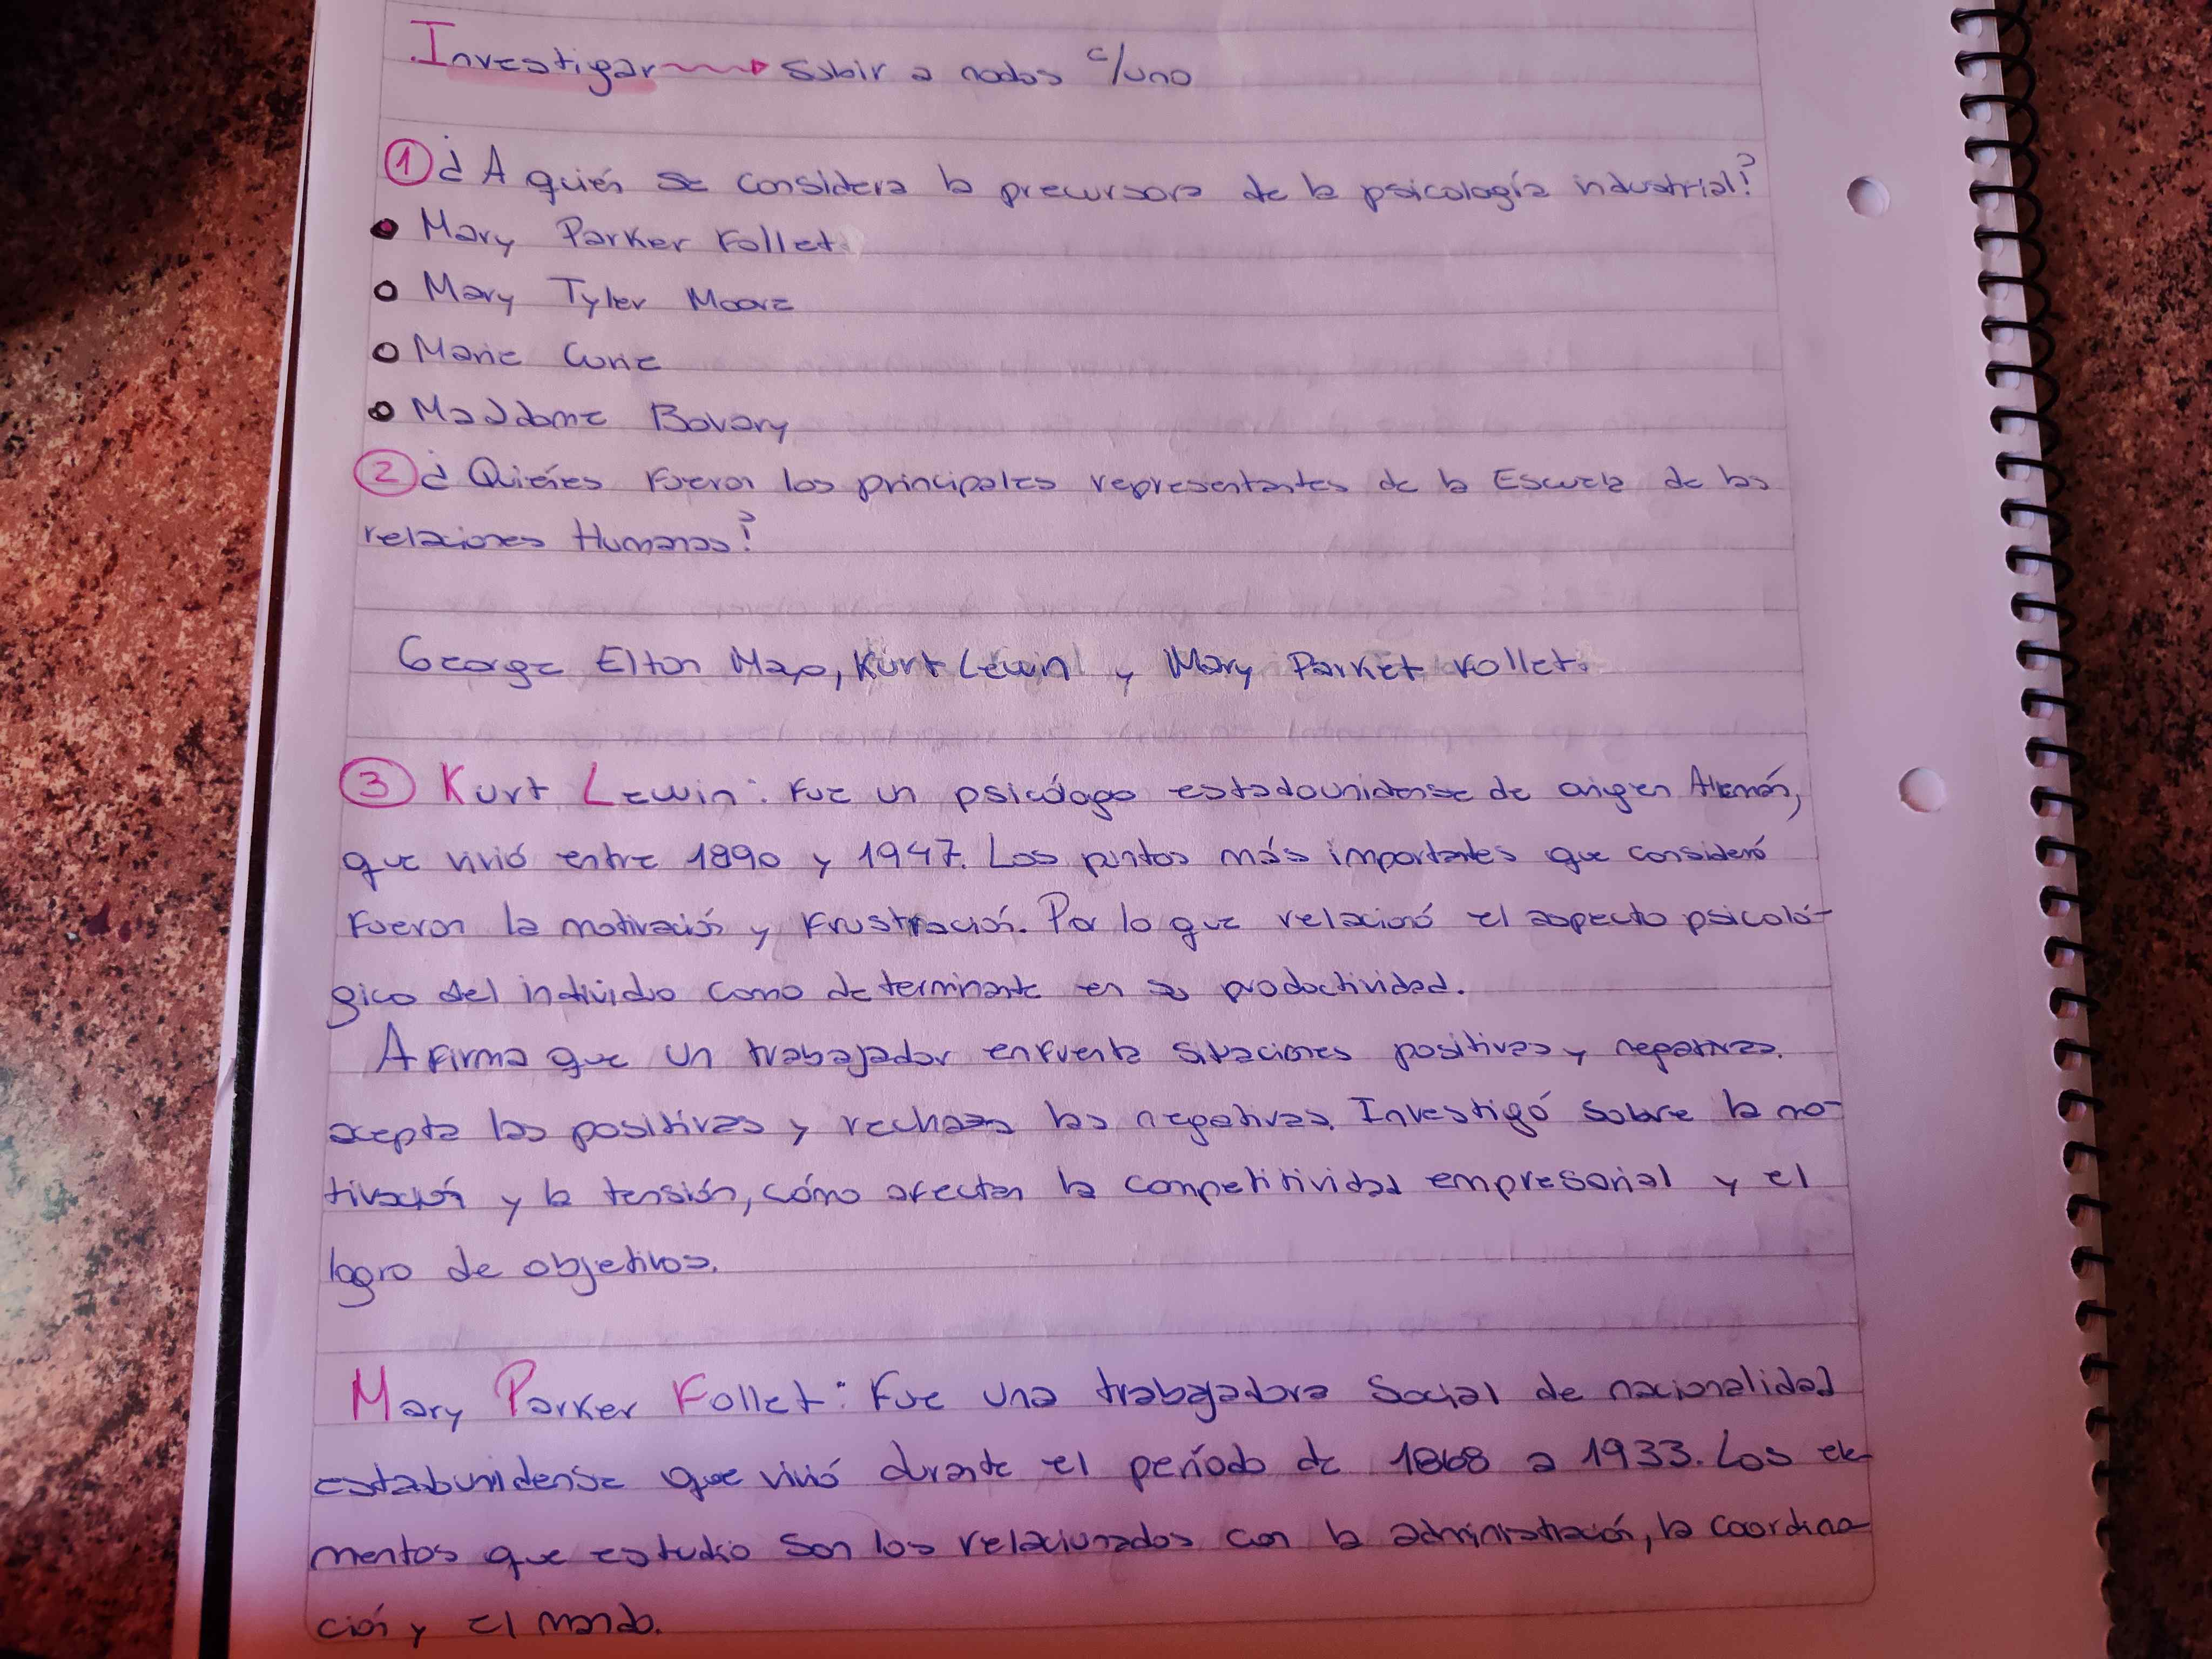 Investigar → Subir a nodos c/uno
① ¿A quién se considera la precursora de la psicología industrial?
Mary Parker Follet.
Mary Tyler Moore
Marie Curie
Maddame Bovary
② ¿Quiénes fueron los principales representantes de la Escuela de las
relaciones Humanas?
George Elton Mayo, Kurt Lewin y Mary Parket Follet.
③ Kurt Lewin: Fue un psicólogo estadounidense de origen Alemán,
que vivió entre 1890 y 1947. Los puntos más importantes que consideró
fueron la motivación y frustración. Por lo que relacionó el aspecto psicoló-
gico del individuo como determinante en su productividad.
Afirma que un trabajador enfrenta situaciones positivas y negativas.
acepta las positivas y rechaza las negativas. Investigó sobre la mo-
tivación y la tensión, cómo afectan la competitividad empresarial y el
logro de objetivos.
Mary Parker Follet: Fue una trabajadora Social de nacionalidad
estabunidense que vivió durante el período de 1868 a 1933. Los ele-
mentos que estudio son los relacionados con la administración, la coordina-
ción y el mando.